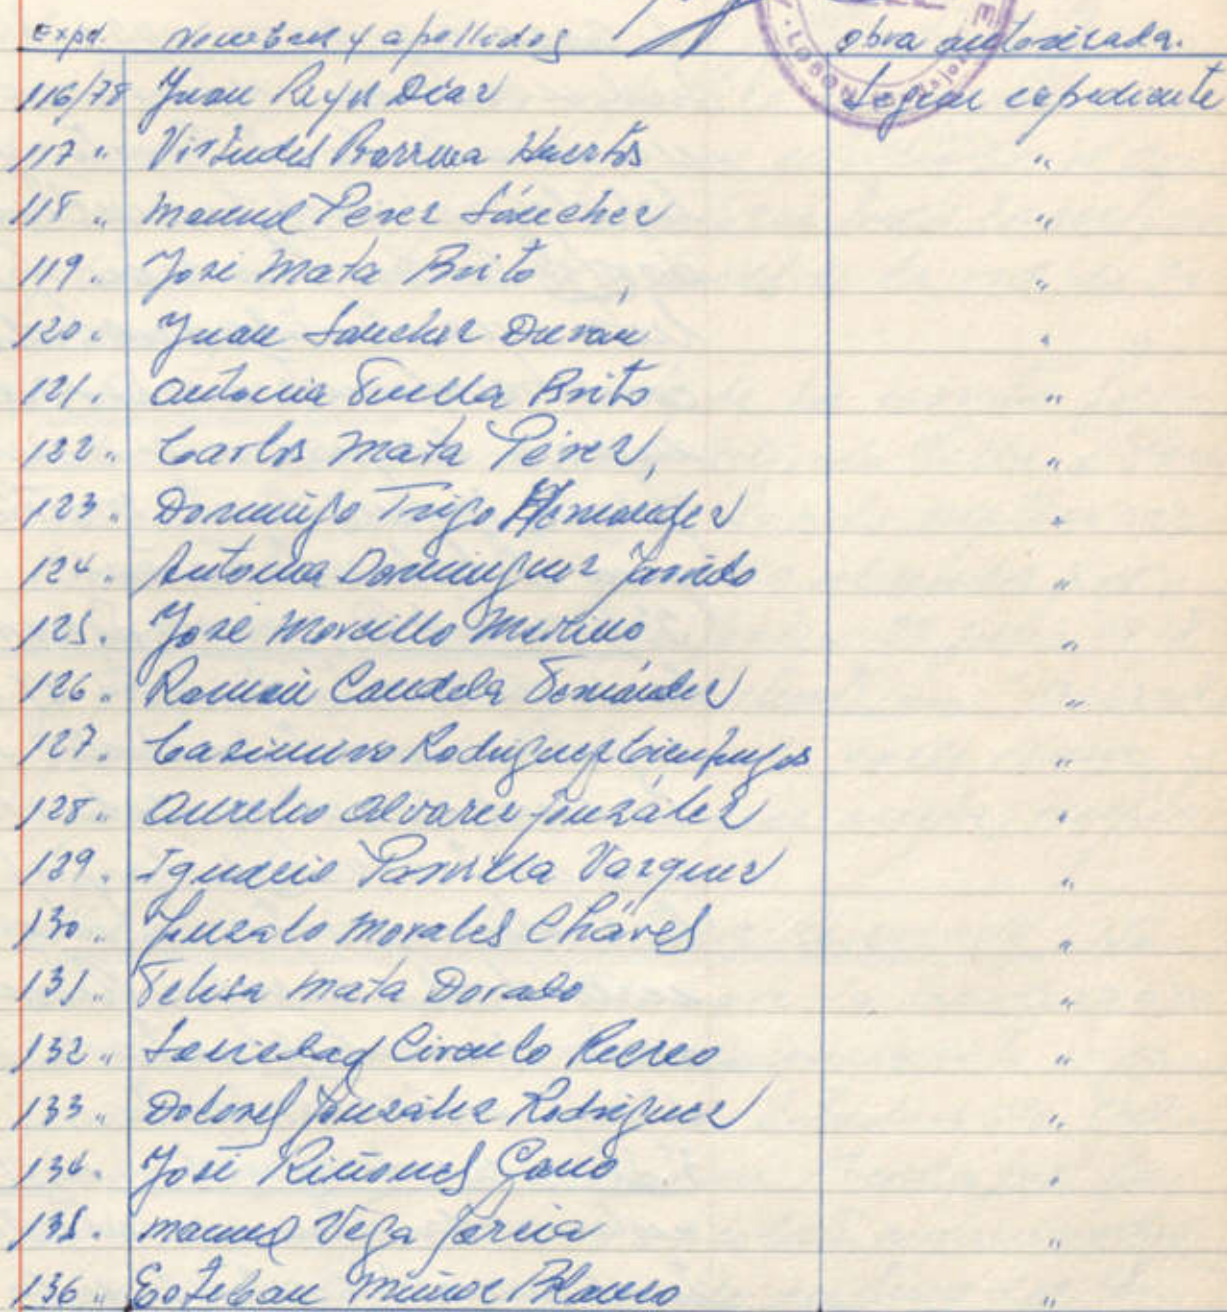 Expd. Nombres y apellidos obra autorizada.
116/78 Juan Reyes Díaz Según expediente
117 " Virtudes Barrena Huertos "
118 " Manuel Pérez Sánchez "
119 " José Mata Brito "
120 " Juan Sánchez Durán "
121 " Antonia Fuella Brito "
122 " Carlos Mata Pérez, "
123 " Domingo Trigo Hernández "
124 " Antonia Dominguez "
125 " José Morcillo Merino "
126 " Román Candela Fernández "
127 " Casimiro Rodriguez Cienfuegos "
128 " Aurelio Alvarez González "
129 " Ignacio Parrilla Vazquez "
130 " Gonzalo Morales Cháves "
131 " Felisa Mata Dorado "
132 " Sociedad Circulo Recreo "
133 " Dolores González Rodriguez "
134 " José Riñones Cano "
135 " Manuel Vega García "
136 " Esteban Muñoz Blanco "
LOBON